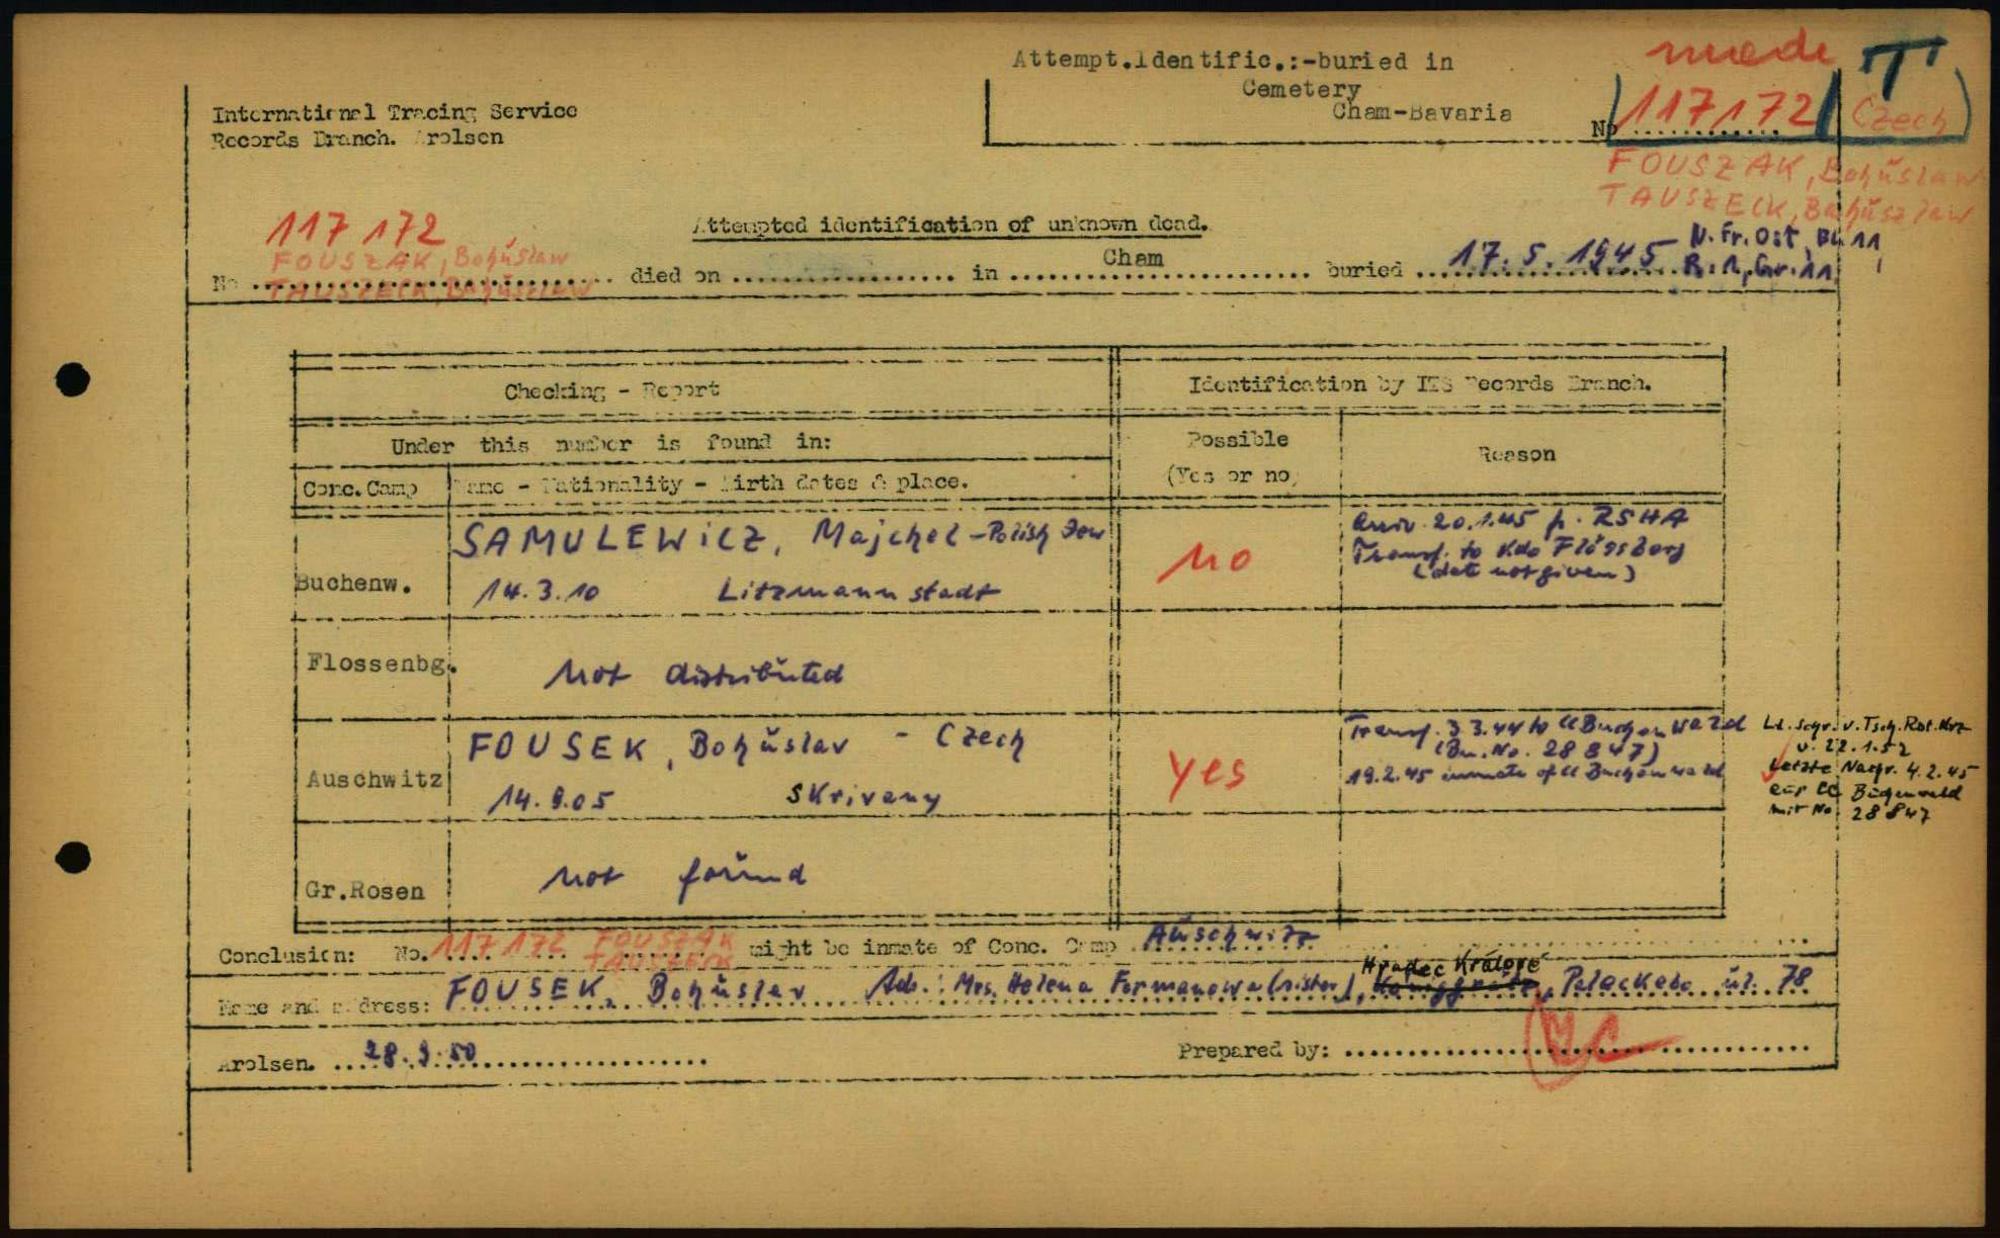 Attempt.Identific.:-buried in
Cemetery
Cham-Bavaria
made
T
No 117172
Czech
FOUSZAK, Bohŭslaw
TAUSZECK, Bohŭszlaw
International Tracing Service
Records Branch. Arolsen
Attempted identification of unknown dead.
117 172
FOUSZAK, Bohŭslaw
TAUSZECK, Bohŭszlaw
No died on in Cham buried 17.5.1945 N.Fr.Ost, Bl.11,
R.1, Gr.11
Checking - Report
Identification by ITS Records Branch.
Under this number is found in:
Possible
(Yes or no)
Reason
Conc.Camp
Name - Nationality - Birth dates & place.
Buchenw.
SAMULEWICZ, Majchel - Polish Jew
14.3.10 Litzmannstadt
no
arriv. 20.1.45 p. RSHA
Transf. to Kdo Flössberg
(date not given)
Flossenbg.
not distribŭted
Auschwitz
FOUSEK, Bohŭslav - Czech
14.9.05 Skrivany
yes
Transf. 3.3.44 to CC Buchenwald
(Bu. No. 28847)
19.2.45 inmate of CC Buchenwald
Lt. Schr. v. Tsch. Rot. Krz
v. 22.1.52
Letzte Nachr. 4.2.45
aus CC Buchenwald
mit No 28847
Gr.Rosen
not foŭnd
Conclusion: No. 117172 FOUSZAK
TAUSZECK
might be inmate of Conc. Camp Aŭschwitz
Name and address: FOUSEK, Bohŭslav Adr.: Mrs. Helena Formanowa (sister), Hradec Králové
Königgrätz, Palackeho ŭl. 78
Arolsen. 28.9.50
Prepared by: